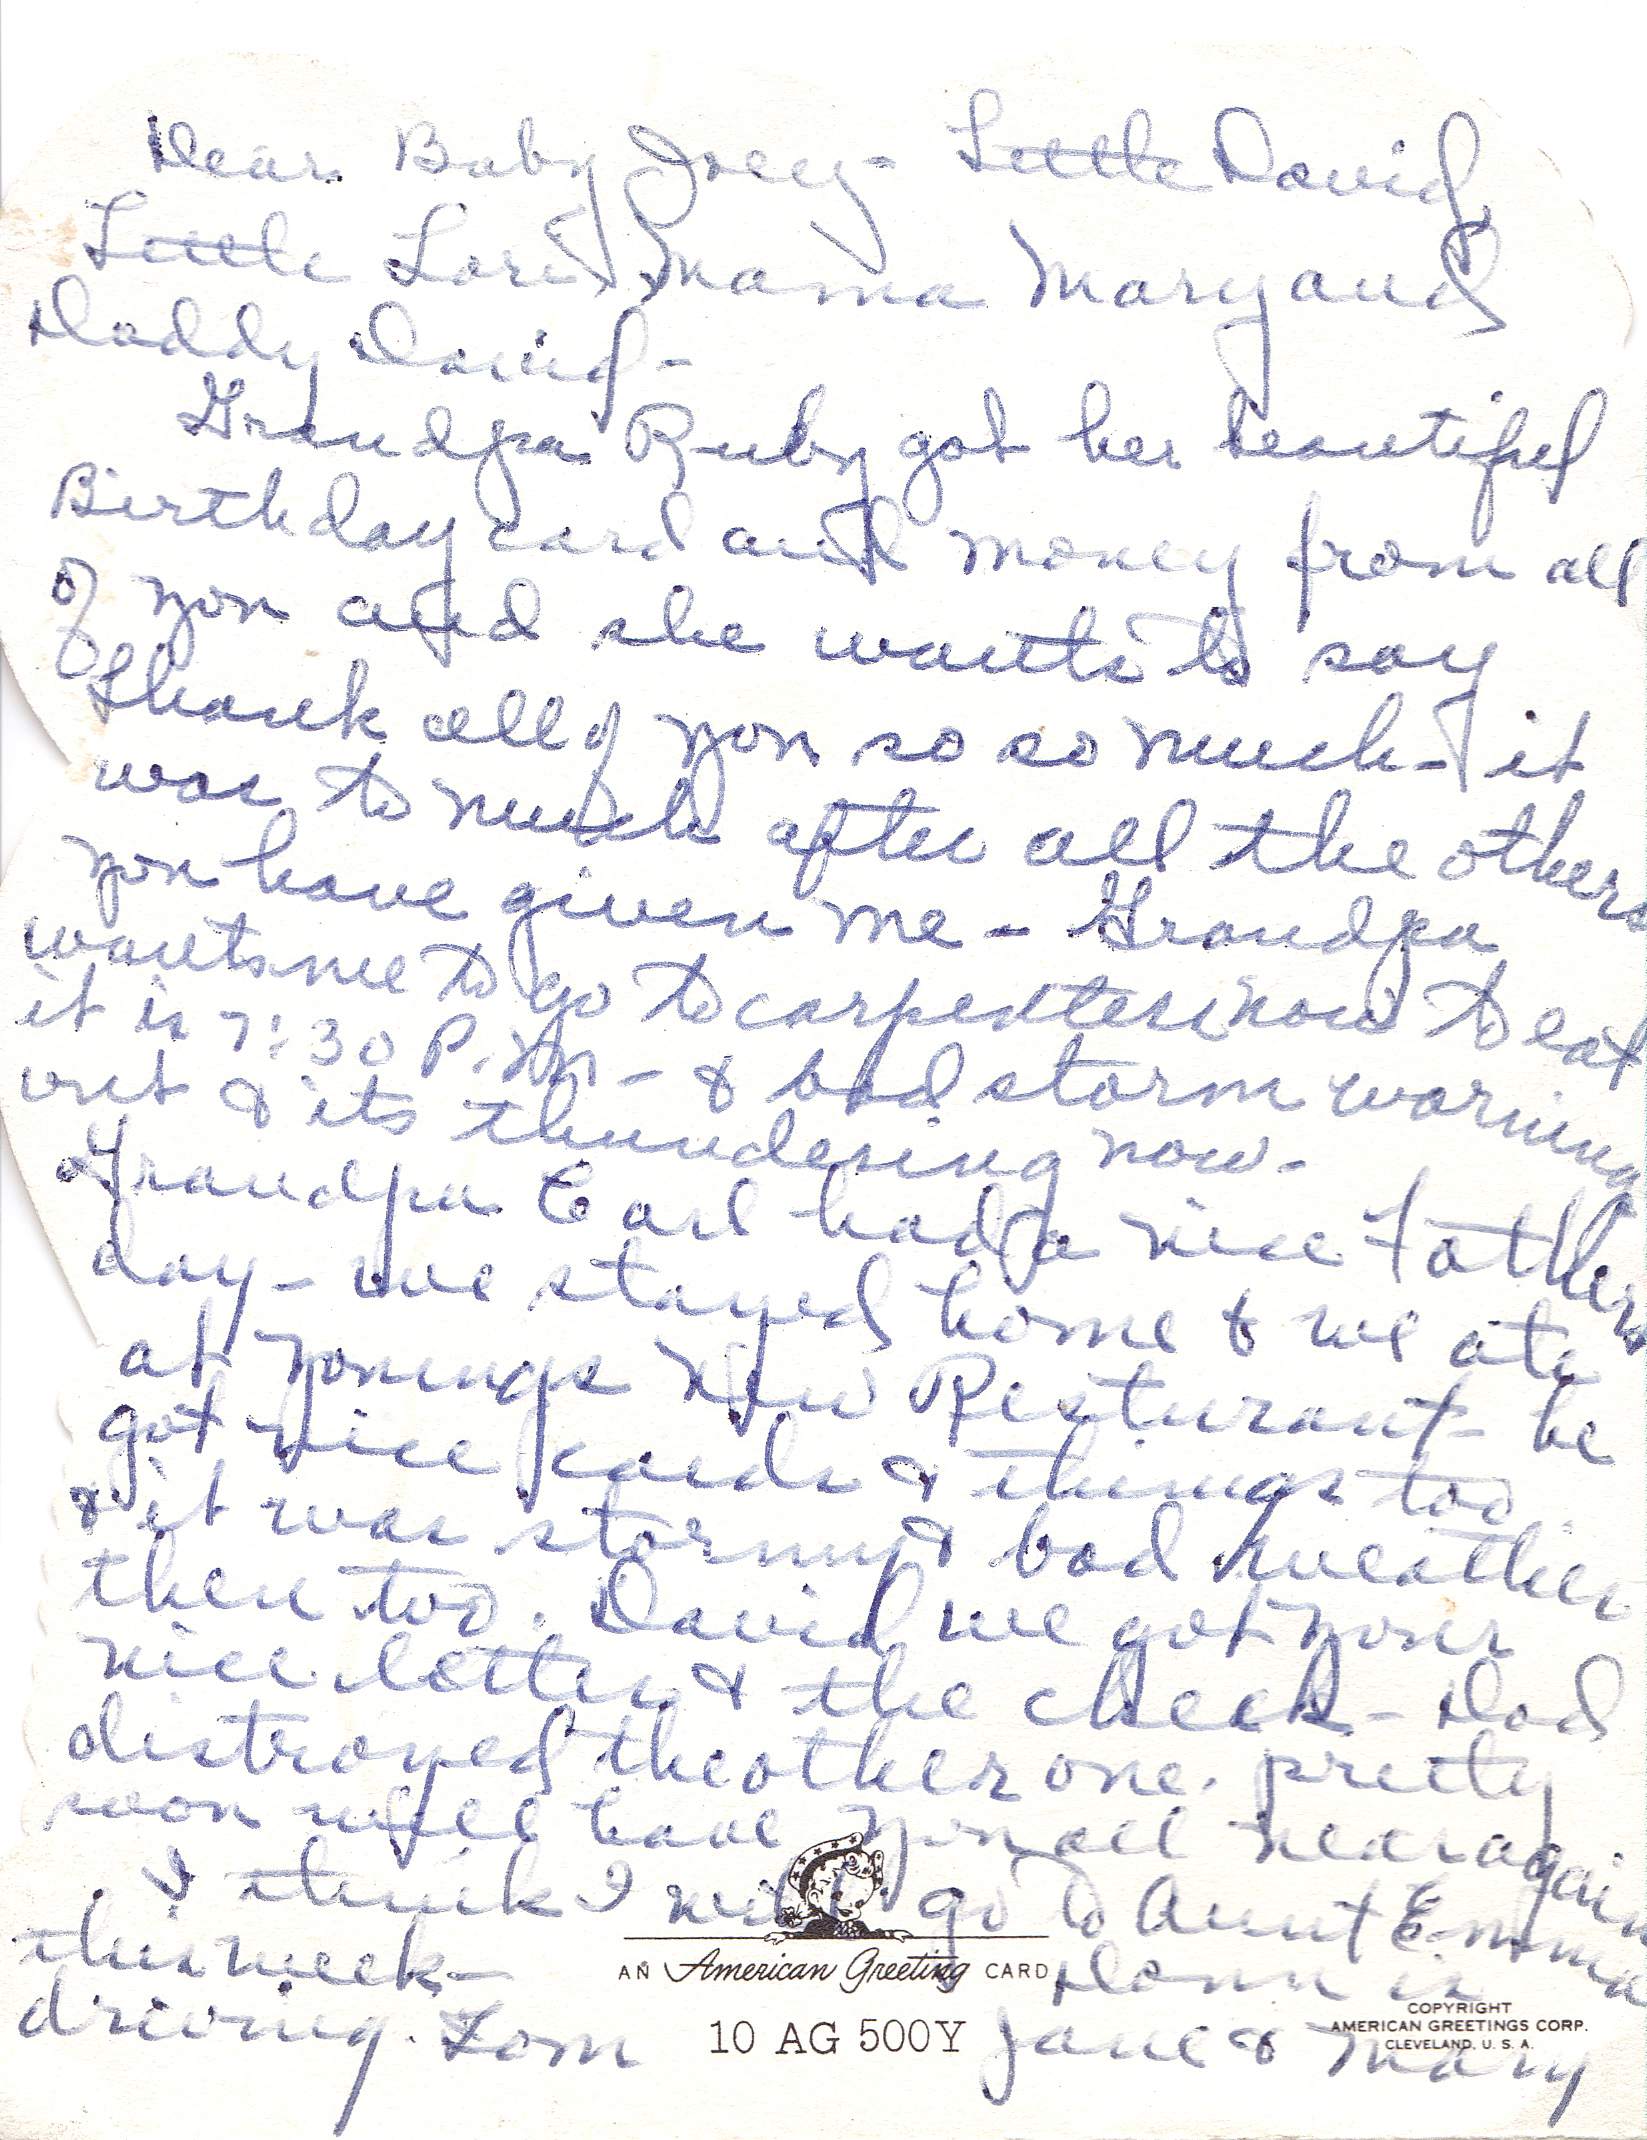 Dear Baby Joey - Little David,
Little Lori, Mama Mary and
Daddy David -
Grandpa Ruby got her beautiful
Birthday card and money from all
of you and she wants to say
thank all of you so so much - it
was to much after all the others
you have given me - Grandpa
wants me to go to carpenters now to eat
it is 7:30 P.M. - & bad storm warning
out & its thundering now -
Grandpa Earl had a nice Fathers
day - we stayed home & we ate
at Youngs New Resturant - he
got nice cards & things too
& it was stormy & bad weather
then too. David we got your
nice letter & the check - Dad
distroyed the other one. pretty
soon will have you all near again
I think I will go to Aunt Emma
this week - Donn is
driving. Tom Jane & Mary
AN American Greeting CARD
10 AG 500Y
COPYRIGHT
AMERICAN GREETINGS CORP.
CLEVELAND, U. S. A.